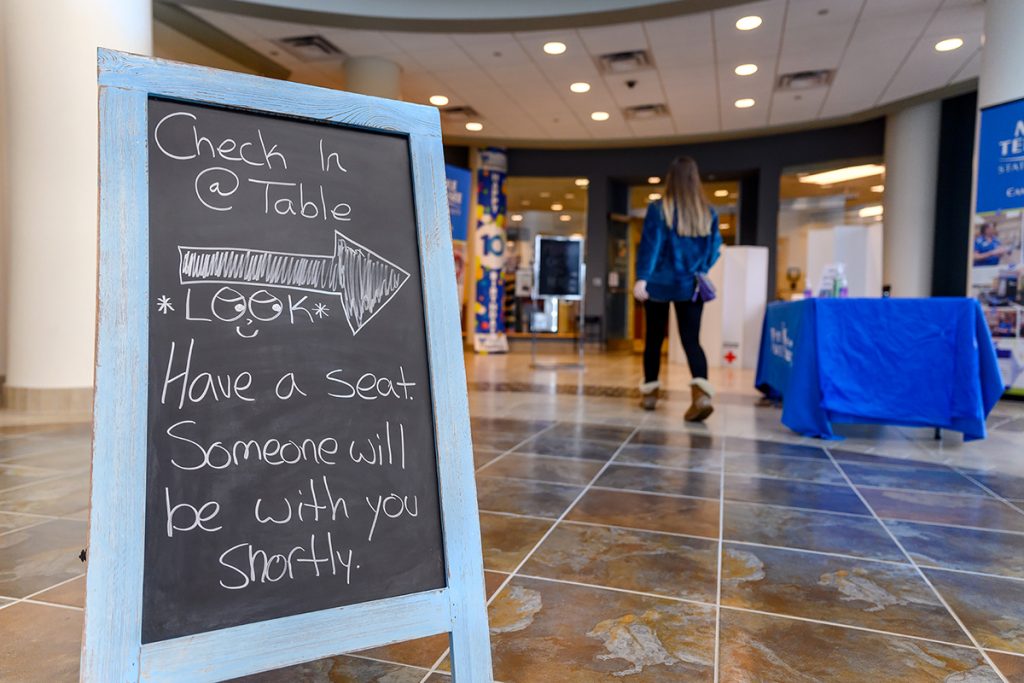 Check In
@ Table
* LOOK *
Have a seat.
Someone will
be with you
shortly.
10